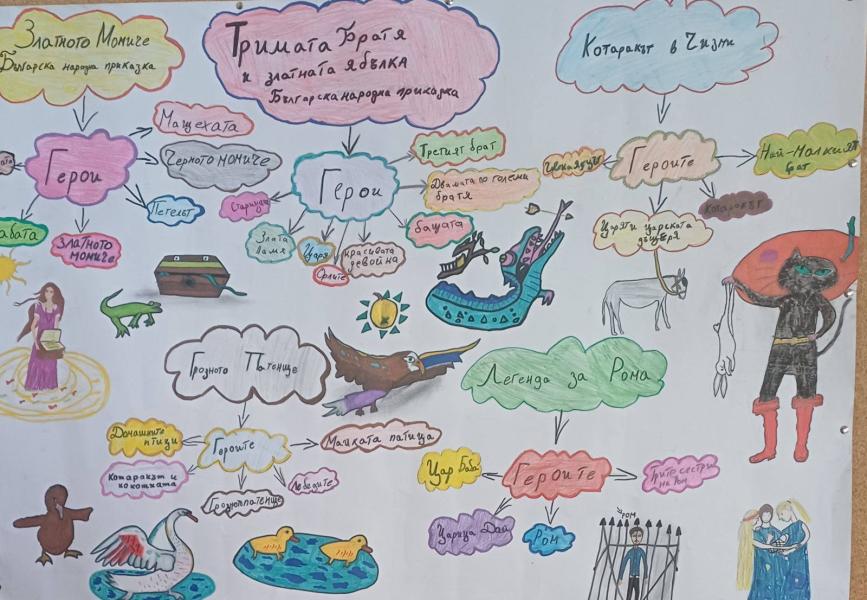 Златното Момиче
Българска народна приказка
Герои
Мащехата
Черното момиче
Петелът
Златното
момиче
Тримата братя
и златната ябълка
Българска народна приказка
Герои
Третият брат
Двамата по големи
братя
бащата
красивата
девойна
Царя
Орлите
Злата
Ламя
Старица
Котаракът в Чизми
Героите
Най-малкият
брат
Котаракът
Царят и царската
дъщеря
Грозното Патенце
Героите
Домашните
птици
Майката патица
Котаракът и
кокошката
Грозното патенце
Лебедите
Легенда за Рома
Героите
Цар Баба
Трите сестри
на Ром
Царица Дай
Ром
Ром